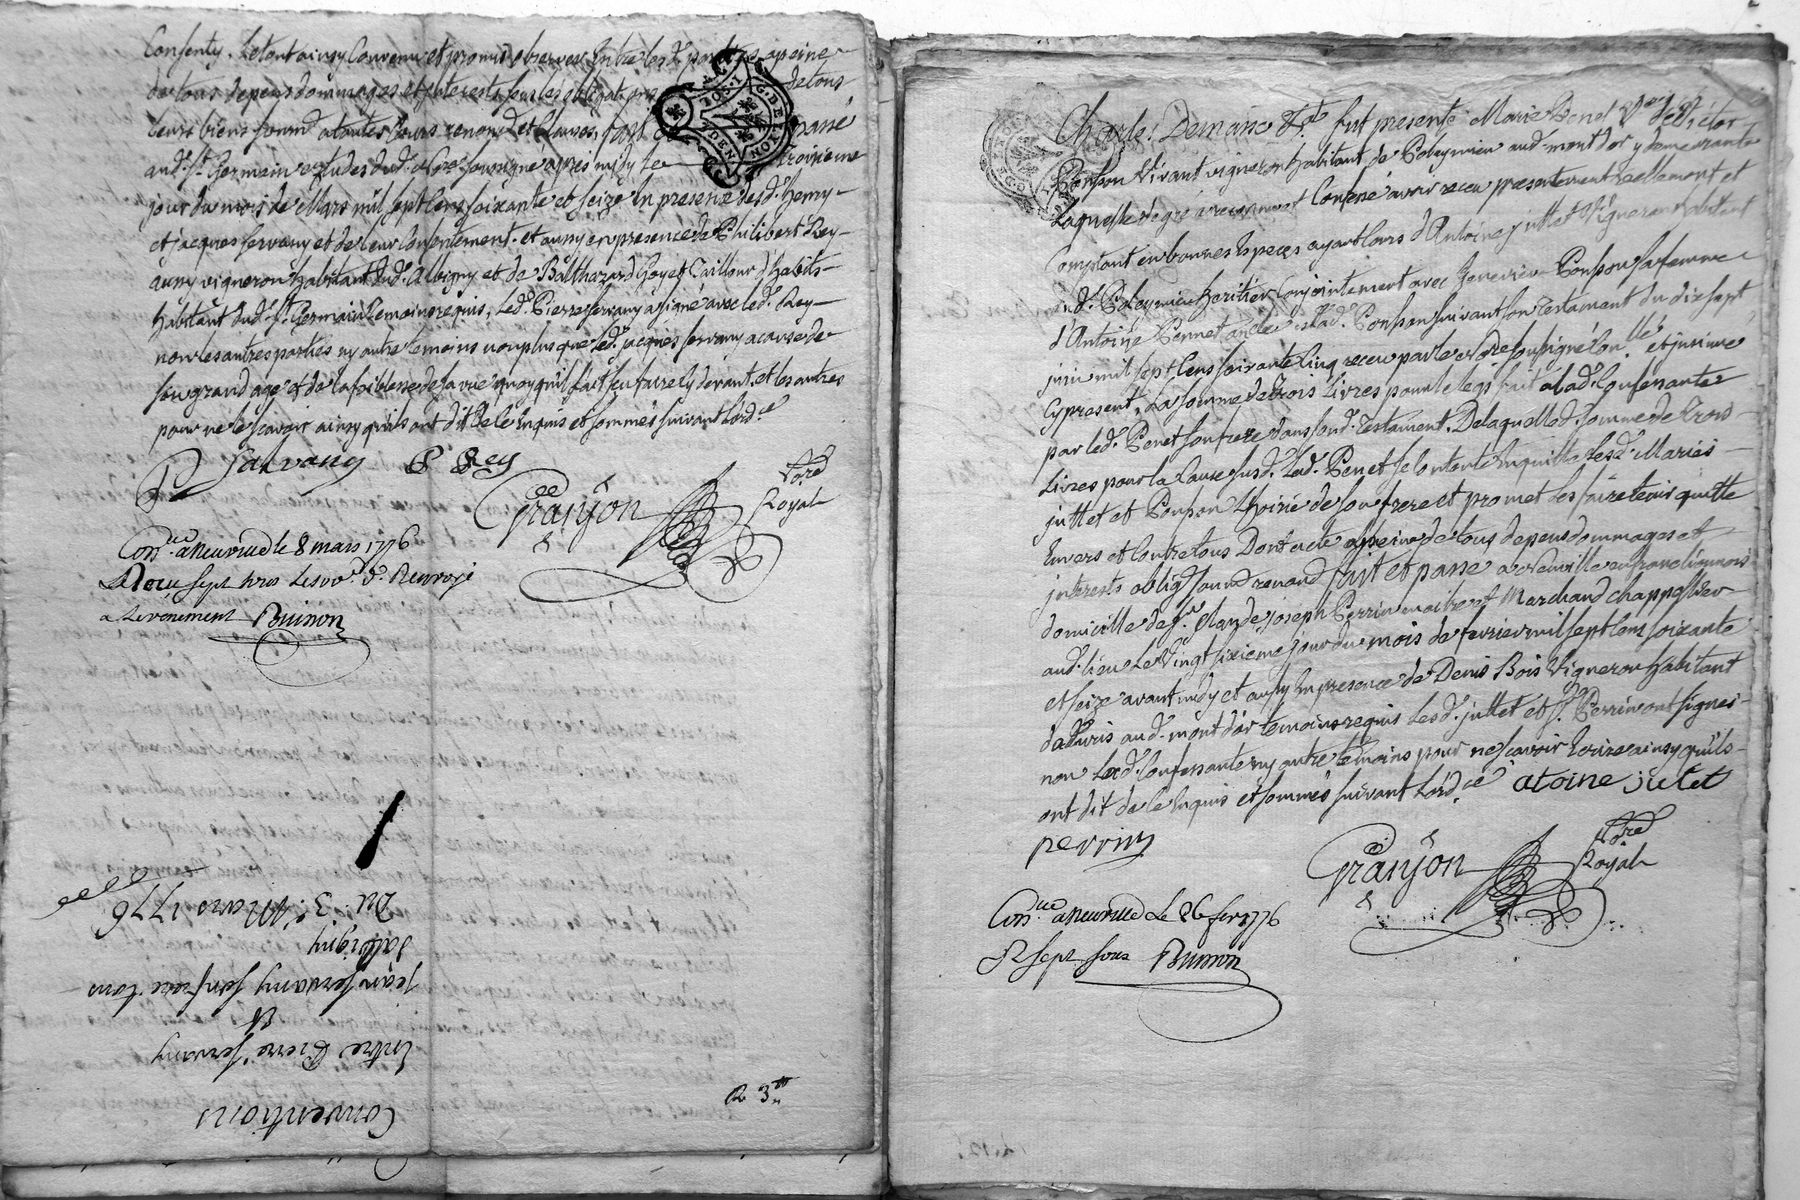 Consenty. Le tout ainsy Convenu et promis observer Entre les d. parties apeine
de tous depens dommages et Interests sous les obligations de tous
leurs biens soumd atoutes Cours renond et Clauses, fait et passé
aud. St. Germain Etudes dud. no.re soussigné apres midy le troisieme
jour du mois de Mars mil sept Cens soixante et seize En presence desd. henry
et jacques servany et de leur Consentement. et aussy en presence de Philibert Rey
aussy vigneron habitant dud. Albigny et de Balthazard Goyet Tailleur d'habits
habitant dud. St. Germain temoins requis, Led. Pierre servany a signé avec led. Rey
non les autres parties ny autre temoins non plus que led. jacques servany a cause de
son grand age et de la foiblesse de sa vue quoy qu'il sait sen faire Cy devant. et les autres
pour ne le scavoir ainsy quils ont dit De ce Enquis et sommés suivant L'ord.ce
P Sarvany P Rey
Granjon
No.re
Royal
Con.lé aneuville le 8 mars 1776
Reçu sept sous
a Levenement Buisson
Conventions
Entre Pierre servany
Et
jean servany son frere tous
d'albigny
Du 3e. Mars 1776
R 3tt
Charles Demarie fut presente Marie Penet Ve. de
Ponson Vivant vigneron habitant de Poleymieu aud. mont d'or y demeurante
Laquelle degré a reconnu et Confessé avoir receu presentement reellement et
Comptant en bonnes Especes ayant Cours d'Antoine juttet Vigneron habitant
aud. Poleymieu heritier Conjointement avec Benevise Ponson sa femme
d'Antoine Penet oncle de lad. Ponson suivant son Testament du dix sept
juin mil sept Cens soixante Cinq receu par le no.re soussigné Con.llé et insinué
Cy present, La somme de trois Livres pour le legs fait a lad. Confessante
par led. Penet son frere dans sond. Testament. De laquelle d. somme de Trois
Livres pour la Cause susd. Lad. Penet se Contente En quitte lesd. Mariés
juttet et Ponson L'hoirie de son frere et promet les faire tenir quitte
Envers et Contre tous Dont acte apeine de tous depens dommages et
interests oblig. soumd renond fait et passé a Neuville en franc lionnois
domicile de Sr. Claude joseph Perrin maitre et Marchand chappellier
aud. lieu Le Vingt sixieme jour du mois de fevrier mil sept Cens soixante
et seize avant midy et aussy En presence de Denis Bois Vigneron habitant
de Curis aud. mont d'or temoins requis Lesd. juttet et Sr. Perrin ont signés
non Lad. Confessante ny autre temoins pour ne scavoir Ecrire ainsy quils
ont dit de ce Enquis et sommés suivant L'ord.ce atoine jutet
perrin
Granjon
No.re
Royal
Con.lé aneuville Le 26 fer 1776
R sept sous Buisson